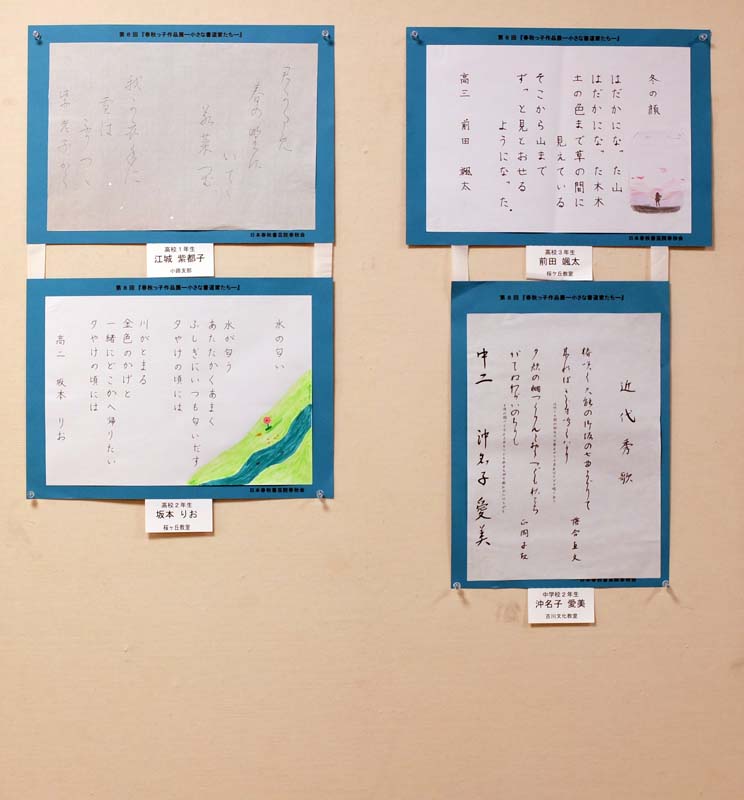 第8回『春秋っ子作品展ー小さな書道家たちー』
君がため
春の野に
いでて
若菜つむ
我が衣手に
雪は
ふりつゝ
日本春秋書芸院春秋会
高校1年生
江城 紫都子
小鈴支部
第8回『春秋っ子作品展ー小さな書道家たちー』
水の匂い
水が匂う
あたたかくあまく
ふしぎにいつも匂いだす
夕やけの頃には
川がとまる
金色のかげと
一緒にどこかへ帰りたい
夕やけの頃には
高二 坂本 りお
日本春秋書芸院春秋会
高校2年生
坂本 りお
桜ヶ丘教室
第8回『春秋っ子作品展ー小さな書道家たちー』
冬の顔
はだかになった山
はだかになった木木
土の色まで草の間に
見えている
そこから山まで
ずっと見とおせる
ようになった。
高三 前田 颯太
日本春秋書芸院春秋会
高校3年生
前田 颯太
桜ケ丘教室
第8回『春秋っ子作品展ー小さな書道家たちー』
近代秀歌
落合直文
正岡子規
中二 沖名子 愛美
日本春秋書芸院春秋会
中学校2年生
沖名子 愛美
吉川文化教室